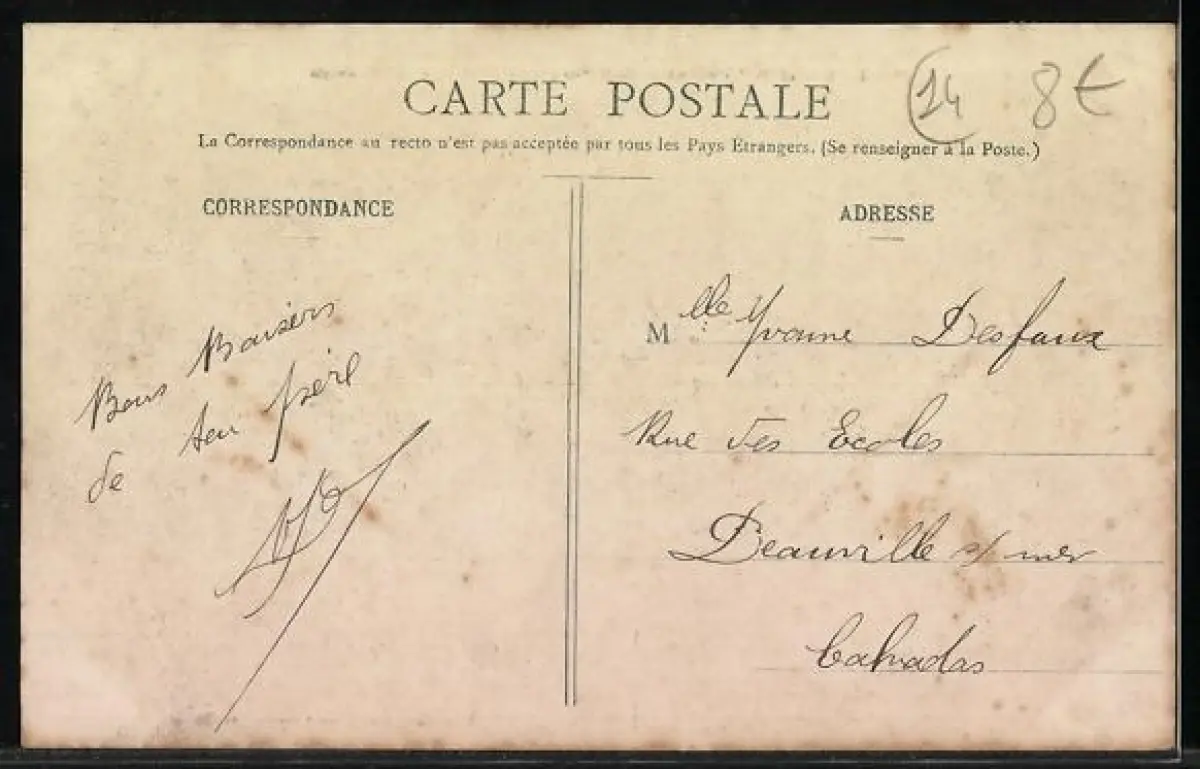 CARTE POSTALE
14 8€
La Correspondance au recto n'est pas acceptée par tous les Pays Etrangers. (Se renseigner à la Poste.)
CORRESPONDANCE
ADRESSE
Bons Baisers
de ton frère
Mlle Yvonne Desfaux
Rue des Ecoles
Deauville s/ mer
Calvados